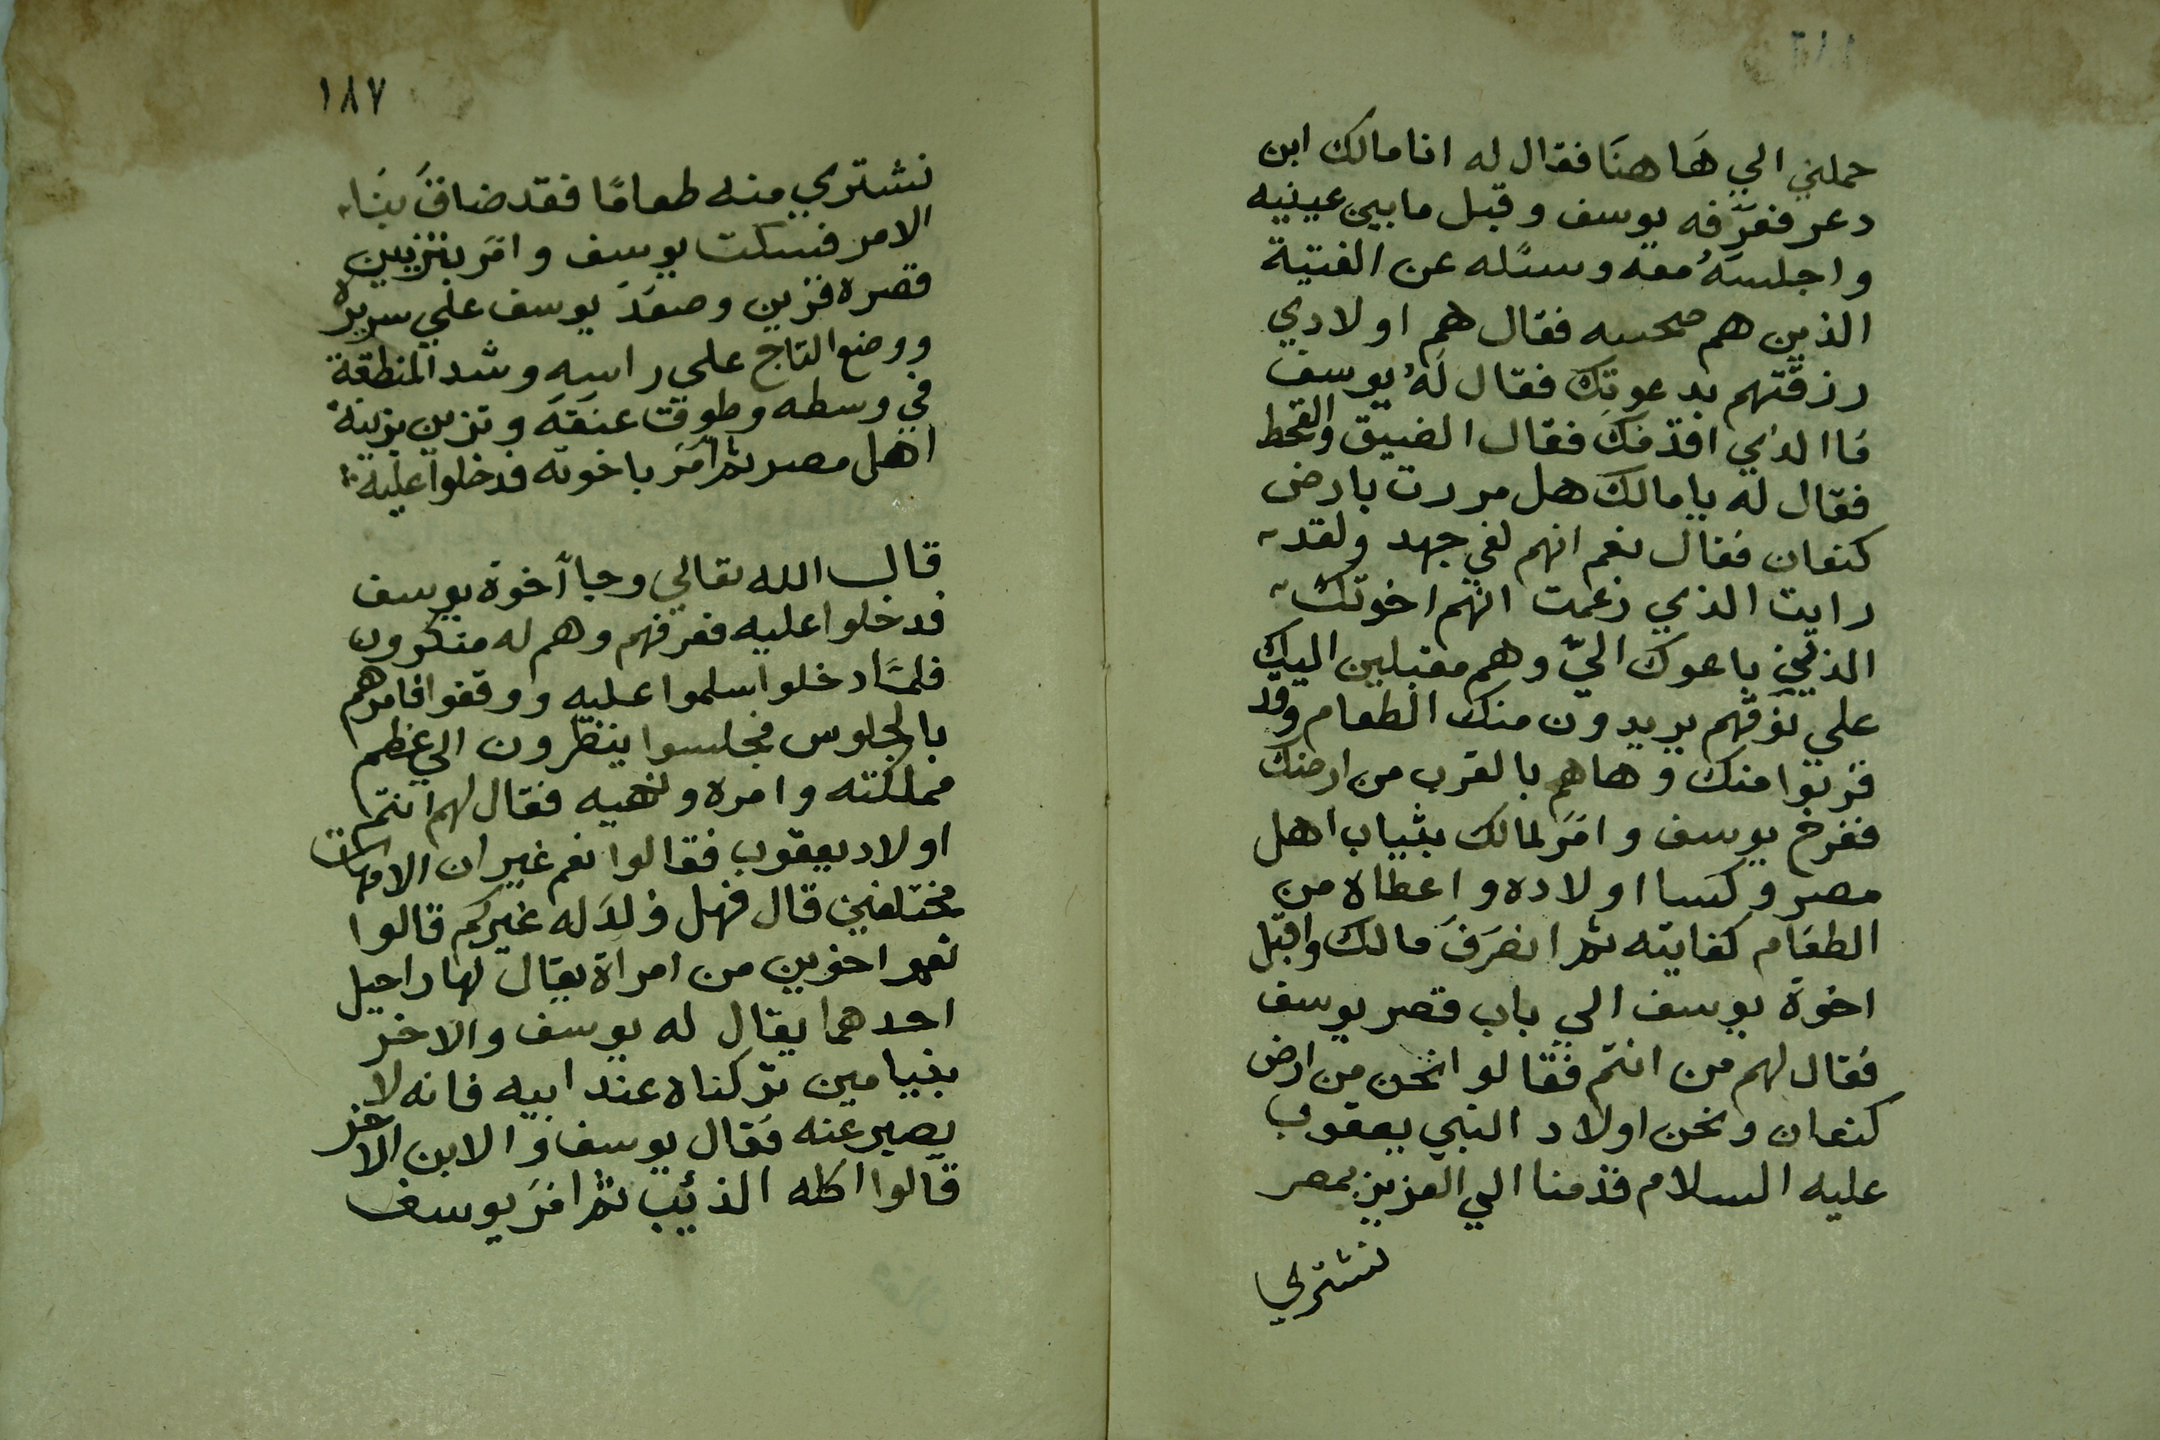 حملني الي هَا هنَا فقال له انا مالك ابن
دعر فعرّفه يوسف وقبل ما بين عينيه
واجلسَهُ معه وسئله عن الفتية
الذين هم صحبته فقال هم اولادي
رزقتهم بدعوتِك فقال لَهُ يوسف
مَا الذي اقدمَك فقال الضيق والقحط
فقال له يا مالكَ هل مررت بارض
كنعان فقال نعم انهم لفي جهد ولقد
رايت الذي زعمت انهم اخوتك
الذين باعوك اليّ وهم مقبلين اليك
علي نوقهم يريدون منك الطعام وقد
قربوا منك وهاهم بالقرب من ارضك
ففرح يوسف وامَر لمالك بثياب اهل
مصر وكسَا اولاده واعطاه من
الطعَام كفايته ثم انصَرَفَ مالك واقبل
اخوة يوسف الي باب قصر يوسف
فقال لهم من انتم فقالوا نحن من ارض
كنعان ونحن اولاد النبي يعقوب
عليه السلام قدمنا الي العزيز بمصر
نشتري
١٨٧
نشتري منه طعامًا فقد ضاقَ بنَا
الامر فسكت يوسف وامَر بتزيين
قصره فزين وصعَدَ يوسف علي سريره
ووضع التاج علي راسه وشد المنطقة
في وسطه وطوقت عنقَهَ وتزين بزينة
اهل مصر ثم امَرَ باخوته فدخلوا عليه
قال الله تعالي وجا آخوة يوسف
فدخلوا عليه فعرفهم وهم له منكرون
فلمَّا دخلوا سلموا عليه ووقفوا فامرهم
بالجلوس فجلسوا ينظرون الي عظم
مملكته وامره ونهيه فقال لهم انتم
اولاد يعقوب فقالوا نعم غير ان الامهات
مختلفين قال فهل وُلدَ له غيركم قالوا
نعم اخوين من امراة يقال لها راحيل
احدهما يقال له يوسف والاخر
بنيامين تركناه عند ابيه فانه لا
يصبر عنه فقال يوسف والابن الاخر
قالوا اكله الذئب ثم امَرَ يوسف